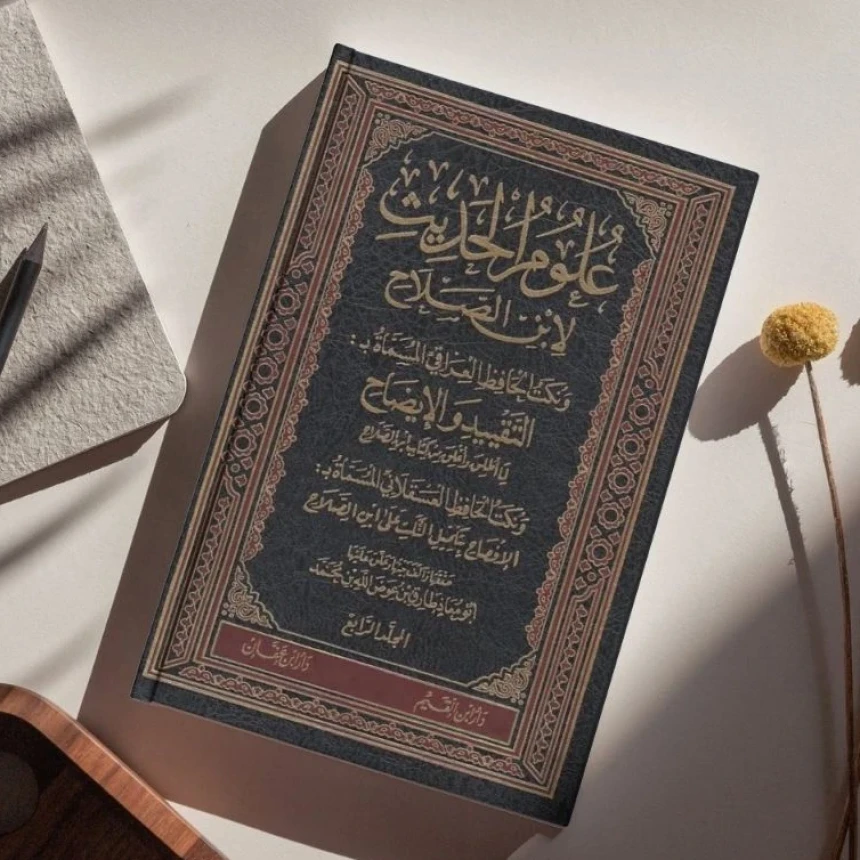 علوم الحديث
لابن الصلاح
ونكت الحافظ العراقي المسماة بـ :
التقييد والإيضاح
لما أطلق وأغلق من كتاب ابن الصلاح
ونكت الحافظ العسقلاني المسماة بـ :
الإفصاح بتكميل النكت على ابن الصلاح
حققه وعلق عليه
أبو معاذ طارق بن عوض الله بن محمد
المجلد الرابع
دار ابن عفان
دار ابن القيم